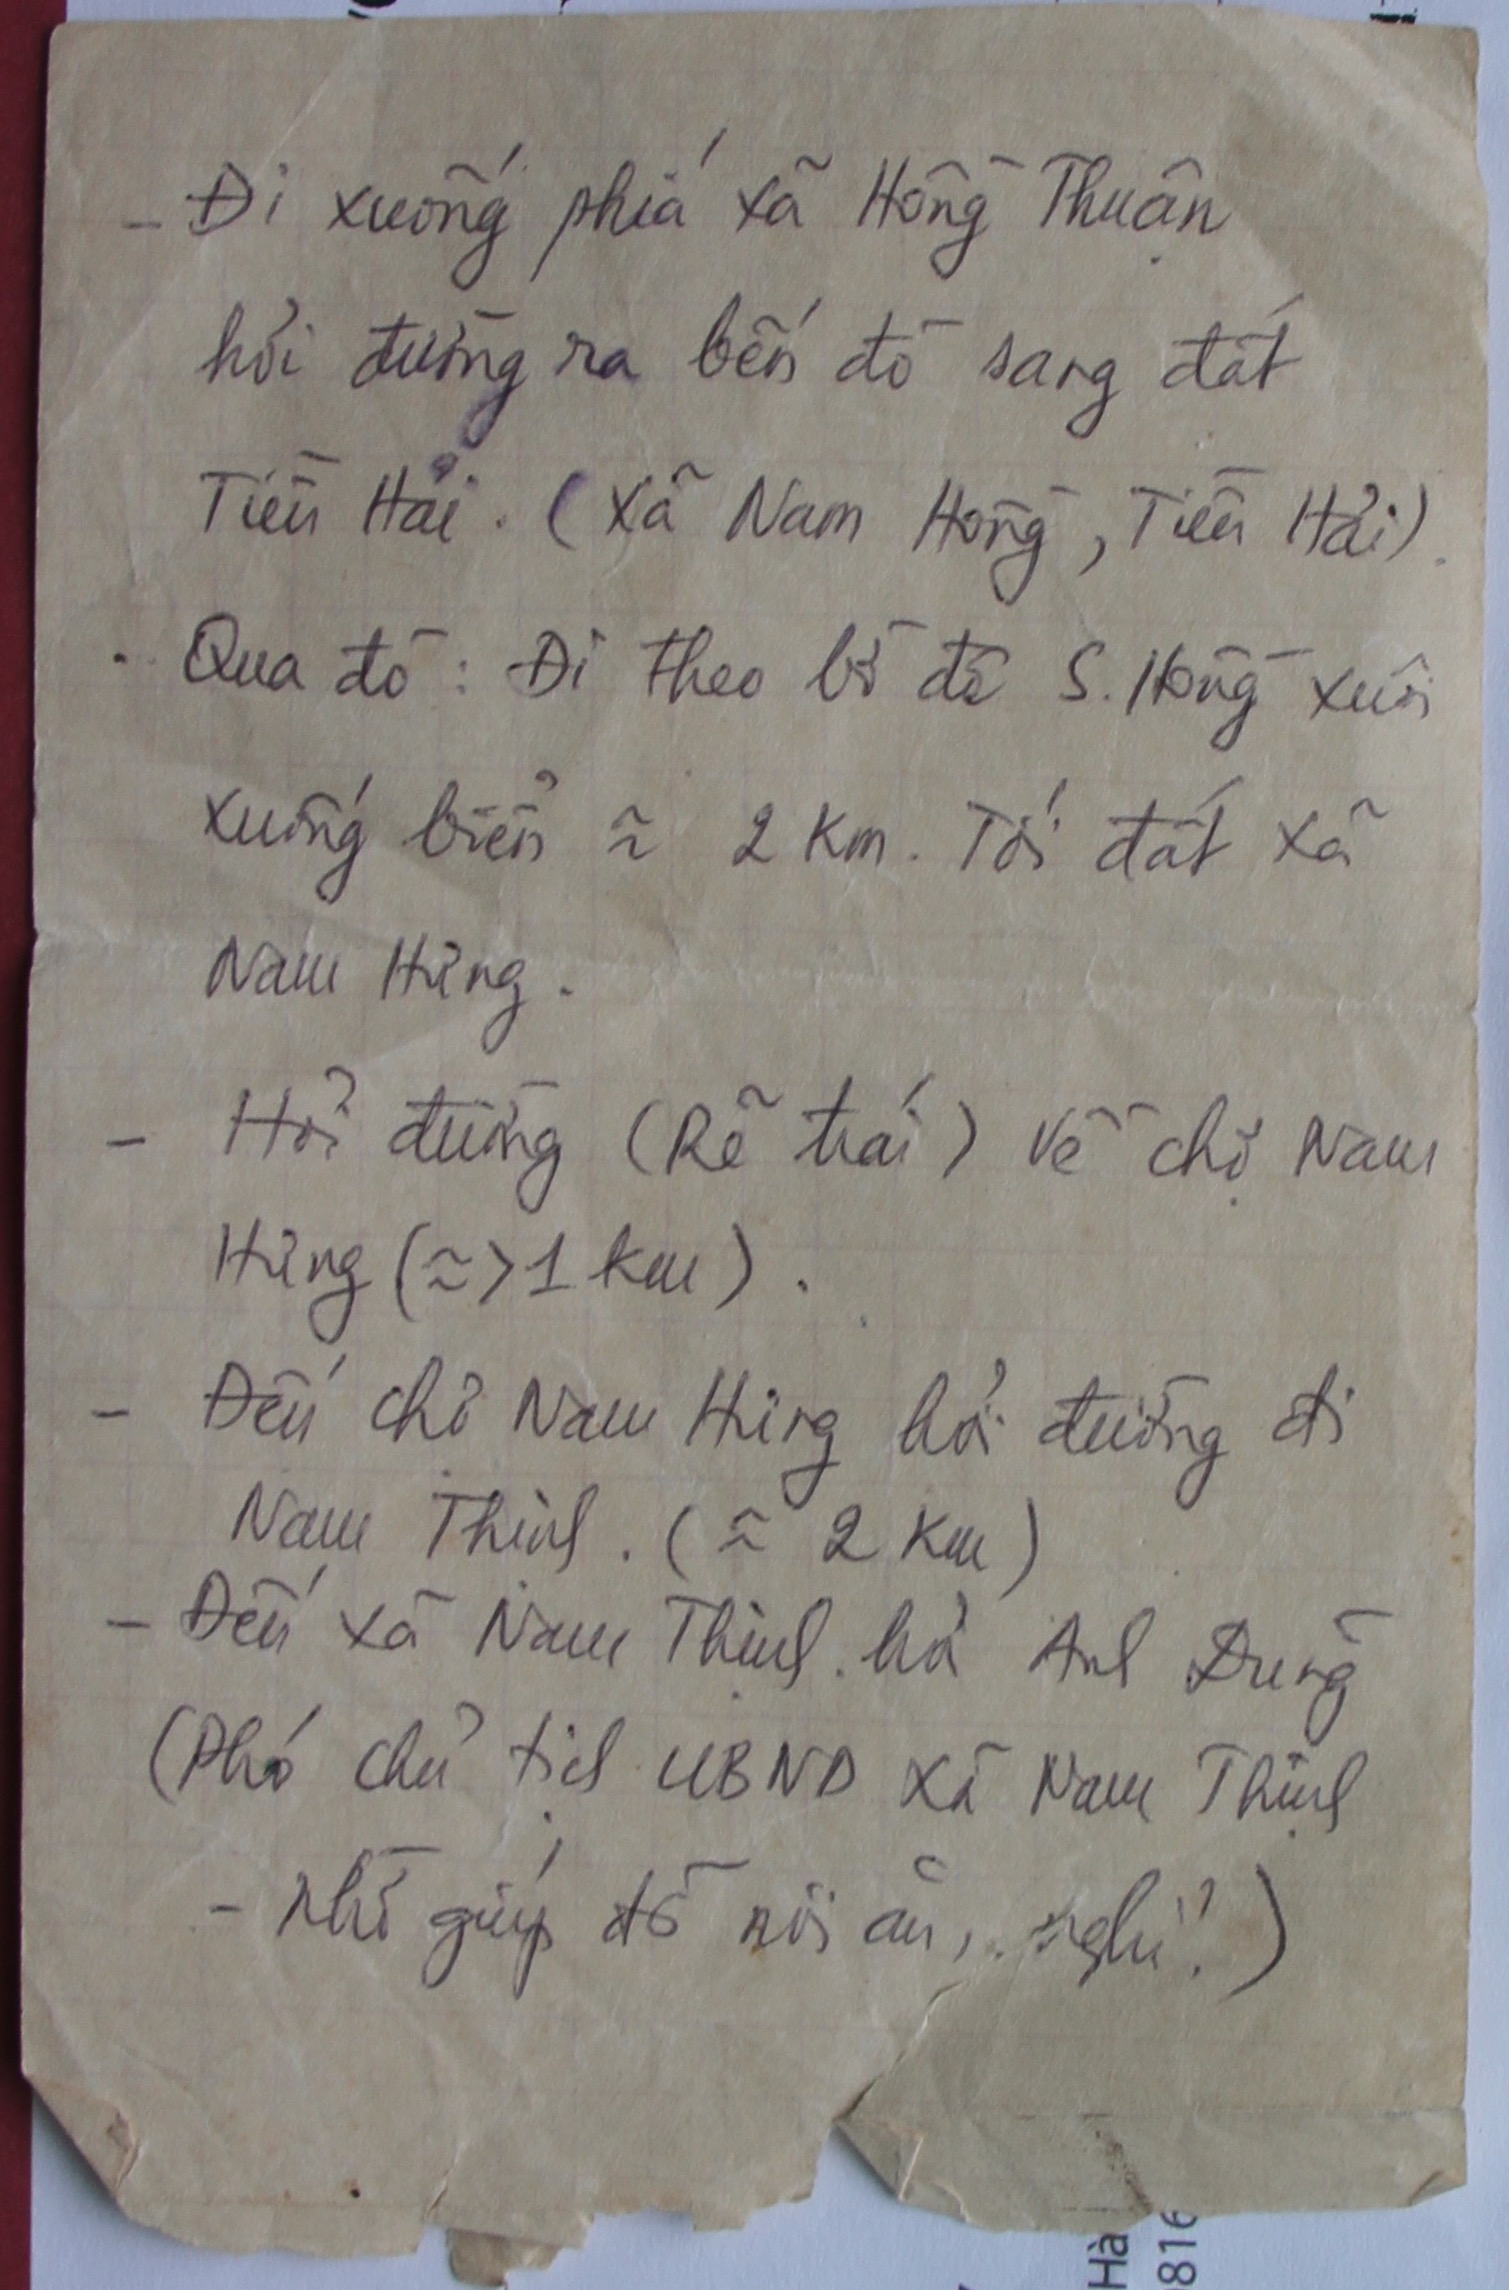 - Đi xuống phía xã Hồng Thuận
hỏi đường ra bến đò sang đất
Tiền Hải. (Xã Nam Hồng, Tiền Hải).
- Qua đò: Đi theo bờ đê S. Hồng xuôi
xuống biển ≈ 2 Km. Tới đất xã
Nam Hưng.
- Hỏi đường (Rẽ trái) về chợ Nam
Hưng (≈>1 km).
- Đến chợ Nam Hưng hỏi đường đi
Nam Thịnh. (≈ 2 Km)
- Đến xã Nam Thịnh. hỏi Anh Dũng
(Phó chủ tịch UBND xã Nam Thịnh
- Nhờ giúp đỡ nơi ăn, nghỉ.)
Hà
0816